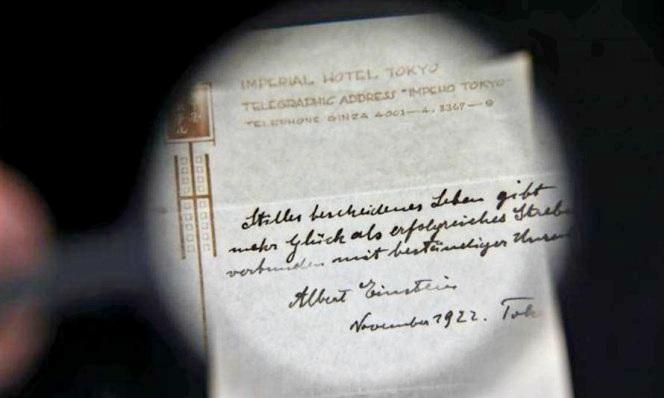 IMPERIAL HOTEL TOKYO
TELEGRAPHIC ADDRESS "IMPEHO TOKYO"
TELEPHONE GINZA 4001–4, 3367–9
Stilles bescheidenes Leben gibt
mehr Glück als erfolgreiches Strebe
verbunden mit beständiger Unru
Albert Einstein
November 1922. Tok